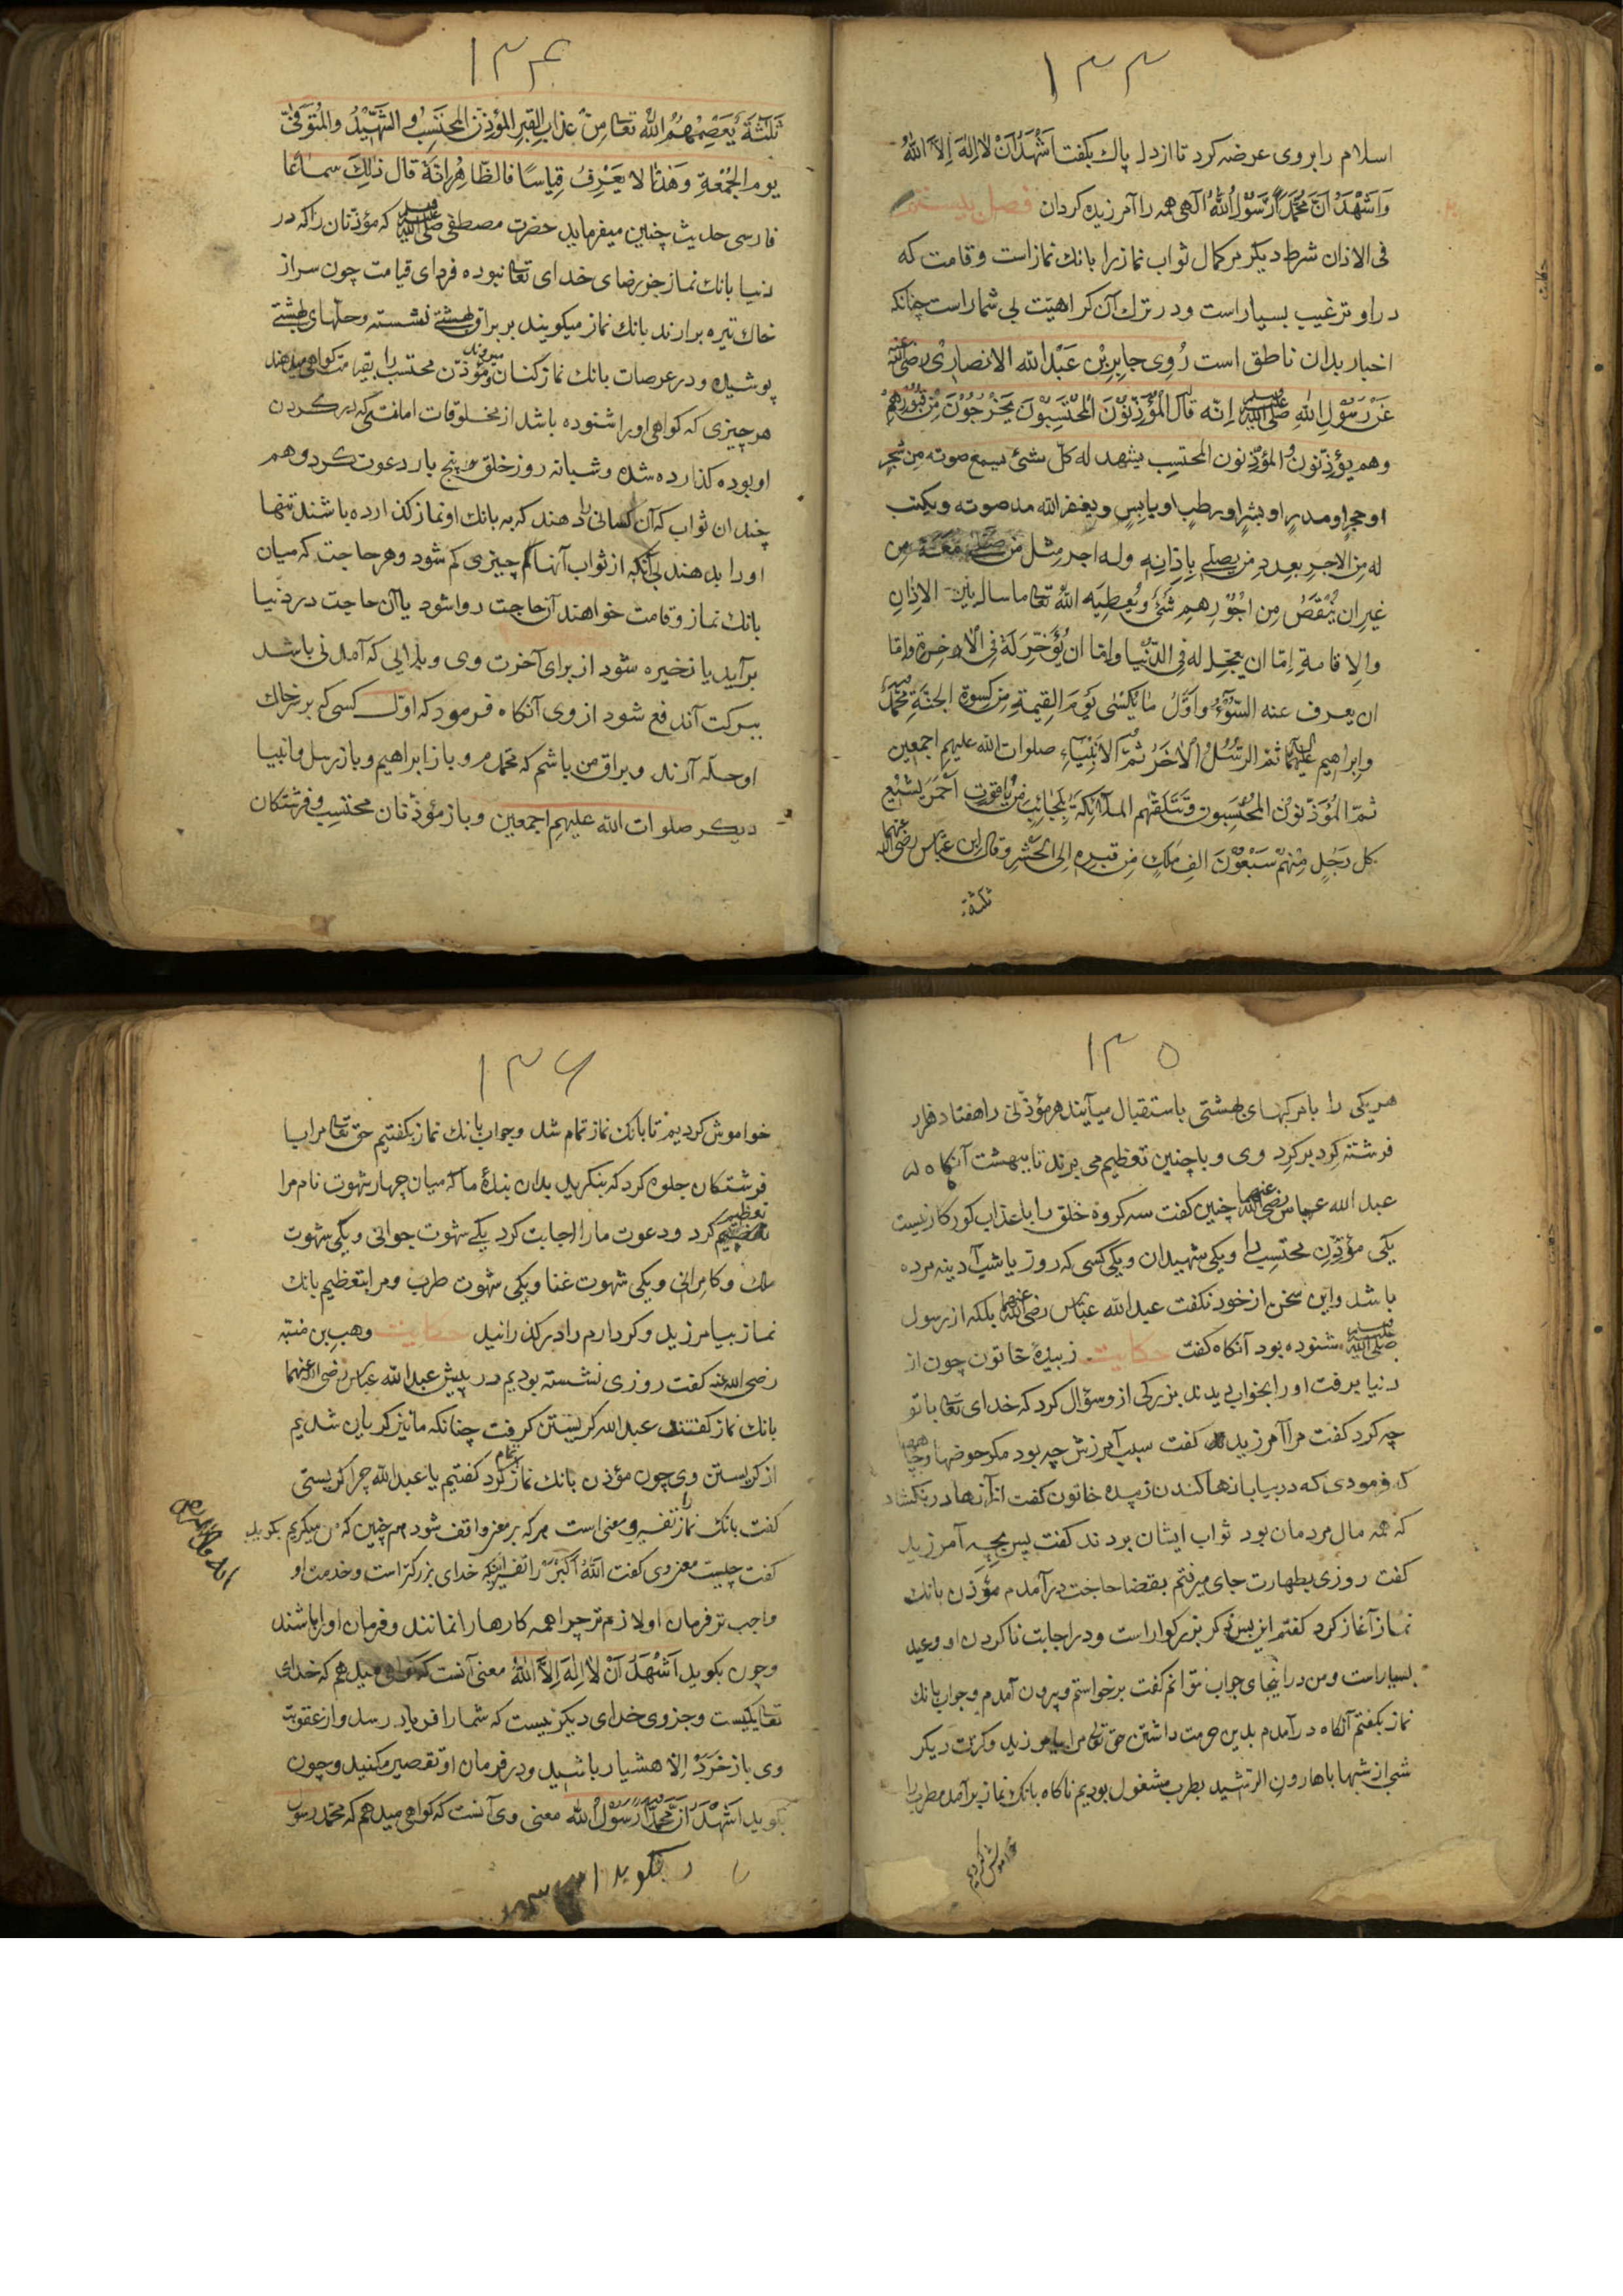 ۱۳۳
اسلام را بروی عرضه کرد تا از دل پاک بکفت اَشْهَدُ اَنْ لا اِلهَ اِلاَّ اللهُ
وَاَشْهَدُ اَنَّ مُحَمَّدًا رَسُوْلُ اللهُ آلهی همه را آمرزیده کردان فصل بیستم
فی الاذان شرط دیکر مرکمال ثواب نماز را بانك نماز است و قامت که
در او ترغیب بسیار است و در ترك آن کراهیّت بی شمار است چنانکه
اخبار بدان ناطق است رُوِی جابِرِبْنِ عَبْدالله الانصاری رضی الله عنه
عَنْ رَسُوْلِ اللهِ صلی الله علیه وسلم اِنّه قالَ الْمُؤَذِّنُوْنَ الْمُحْتَسِبُوْنَ یَخْرُجُوْنَ مِنْ قُبُوْرِهِمْ
وهم یؤذّنون والمؤذّنون المحتسِب یشهد له کلّ شئ سمع صوته مِن شجرٍ
او حجرٍ او مدرٍ او بشرٍ او رطبٍ او یابسٍ ویغفر الله مد صوته ویکتب
له مِن الاجرِ بعددِ مِن یصلی بِاذانِهِ وله اجر مِثل مَن صلّی مَعَهُ مِن
غیرِ ان یُنْقَصُ مِن اُجُوْرِهِم شَئٌ ویُعطِیَه اللهُ تعالی ما سال بَیْنَ الاذانِ
والاِقامةِ اِمّا ان یعجّل له فِی الدّنْیا واِمّا ان یُؤَخّر لَهُ فِی الاٰخِرةِ واِمّا
ان یصرف عنه السُّوْٓءُ واَوَّلُ ما یُکْسٰی یَوْمَ القِیمةِ مِن کِسوةِ الجنّةِ مُحمّدٌ
وابِراهیم علیهما ثمّ الرُّسُلُ الاٰخَرُ ثُمَّ الاَنْبِیَآءِ صلوات الله علیهم اجمعین
ثمّ المُؤَذّنونُ المُحْتَسِبون وتَتَلَقّهُم الملآئِکَةُ بِنَجائِبَ مِنْ یاقوتٍ اَحْمَرَ یُشَیِّعُ
کل رَجُلٍ مِنْهُمْ سَبْعُوْنَ الفِ مَلَكٍ مِن قبرِهِ اِلی المَحْشَرِ وقال ابن عبّاس رضی الله عنهما
ثلثة
۱۳۴
ثَلٰثَةٌ یَعْصِمُهُمُ اللّٰهُ تعالی مِنْ عذابِ القبرِ المؤذنُ المُحْتَسِبُ والشَّهِیْدُ والمُتَوَفّیٰ
یوم الجُمُعَةِ وَهذا لا یَعْرِفُ قِیاسًا فالظّاهِرُ انّهُ قال ذٰلِكَ سماعًا
فارسی حدیث چنین میفرماید حضرت مصطفی صلی الله علیه وسلم که مؤذنان را که در
دنیا بانك نماز جز رضای خدای تعالی نبوده فردای قیامت چون سر از
خاك تیره برارند بانك نماز میکویند بر براق بهشتی نشسته وحلّهای بهشتی
پوشیده ودر عرصات بانك نمازکنان میروند ومؤذن محتسب را بقیامت کواهی میدهند
هر چیزی که کواهی او را شنوده باشد از مخلوقات اما مفتی که در کردن
او بوده کذارده شده وشبانه روز خلق را پنج بار دعوت کرد وهم
چندان ثواب که آن کسانی را دهند که به بانك او نماز کذارده باشند تنها
او را بدهند بی آنکه از ثواب آنها کم چیزی کم شود وهر حاجت که میان
بانك نماز وقامت خواهند آن حاجت روا شود یا آن حاجت در دنیا
برآید یا ذخیره شود از برای آخرت وی وبلایی که آمدنی باشد
ببرکت آن دفع شود از وی آنکاه فرمود که اوّل کسی که بر خاك
او حلّه آرند وبراق من باشم که محمدم وباز ابراهیم وباز رسل وانبیا
دیکر صلوات الله علیهم اجمعین وباز مؤذنان محتسب وفرشتکان
۱۳۵
هر یکی را با مرکبهای بهشتی باستقبال میآیند هر مؤذنی را هفتاد هزار
فرشته کرد برکرد وی وبا چنین تعظیم می برند تا ببهشت آنکاه
عبد الله عباس رضی الله عنهما چنین کفت سه کروه خلق را با عذاب کور کار نیست
یکی مؤذن محتسب را ویکی شهیدان ویکی کسی که روز یا شب آدینه مرده
باشد واین سخن از خود نکفت عبد الله عبّاس رضی الله عنهما بلکه از رسول
صلی الله علیه وسلم شنوده بود آنکاه کفت حکایت زبیدهٔ خاتون چون از
دنیا برفت او را بخواب دیدند بزرکی از وسؤال کرد که خدای تعالی با تو
چه کرد کفت مرا آمرزید کفت سبب آمرزش چه بود مکر حوضها وچاهها
که فرمودی که در بیابانها کندند زبیده خاتون کفت از آنها در نکشاد
که همه مال مردمان بود ثواب ایشان بردند کفت پس بچه آمرزید
کفت روزی بطهارت جای میرفتم بقضا حاجت درآمدم مؤذن بانك
نماز آغاز کرد کفتم این بس ذکر بزرکوار است ودر اجابت ناکردن او وعید
بسیار است ومن در اینجای جواب نتوانم کفت برخواستم وبیرون آمدم وجواب بانك
نماز بکفتم آنکاه درآمدم بدین حرمت داشتن حق تعالی مرا بیامرزید وکرت دیکر
شبی از شبها با هارون الرّشید بطرب مشغول بودیم ناکاه بانك نماز برآمد مطرب را
خواموش کردیم
۱۳۶
خواموش کردیم تا بانك نماز تمام شد وجواب بانك نماز بکفتیم حق تعالی مرا با
فرشتکان جلوه کرد که بنکرید بدان بندهٔ ما که میان چهار شهوت نام مرا
تعظیم کرد ودعوت ما را اجابت کرد یکی شهوت جوانی ویکی شهوت
ملك وکامرانی ویکی شهوت غنا ویکی شهوت طرب ومرا بتعظیم بانك
نماز بیامرزید وکردارم را درکذرانید حکایت وهب بن منبّه
رضی الله عنه کفت روزی نشسته بودیم در پیش عبد الله عبّاس رضی الله عنهما
بانك نماز کفتند عبد الله کریستن کرفت چنانکه ما نیز کریان شدیم
از کریستن وی چون مؤذن بانك نماز تمام کرد کفتیم یا عبد الله چرا کریستی
کفت بانك نماز را تفسیر ومعنی است هر که بر معنی واقف شود هم چنین که من میکریم بکرید
کفت چیست معنی وی کفت اَللّٰهُ اَکْبَرْ را تفسیر آنکه خدای بزرکتر است وخدمت او
واجب تر فرمان او لازم تر چرا همه کارها را نمانند وفرمان او را باشند
وچون بکوید اَشْهَدُ اَنْ لا اِلهَ اِلاَّ اللهُ معنی آنست که کواهی میدهم که خدای
تعالی یکیست وجز وی خدای دیکر نیست که شما را فریاد رسد واز عقوبت
وی باز خَرَدْ اِلا هشیار باشید ودر فرمان او تقصیر مکنید وچون
بکوید اَشْهَدُ اَنَّ مُحَمَّدًا رَسُوْلُ الله معنی وی آنست که کواهی میدهم که محمد رسول
بکوید